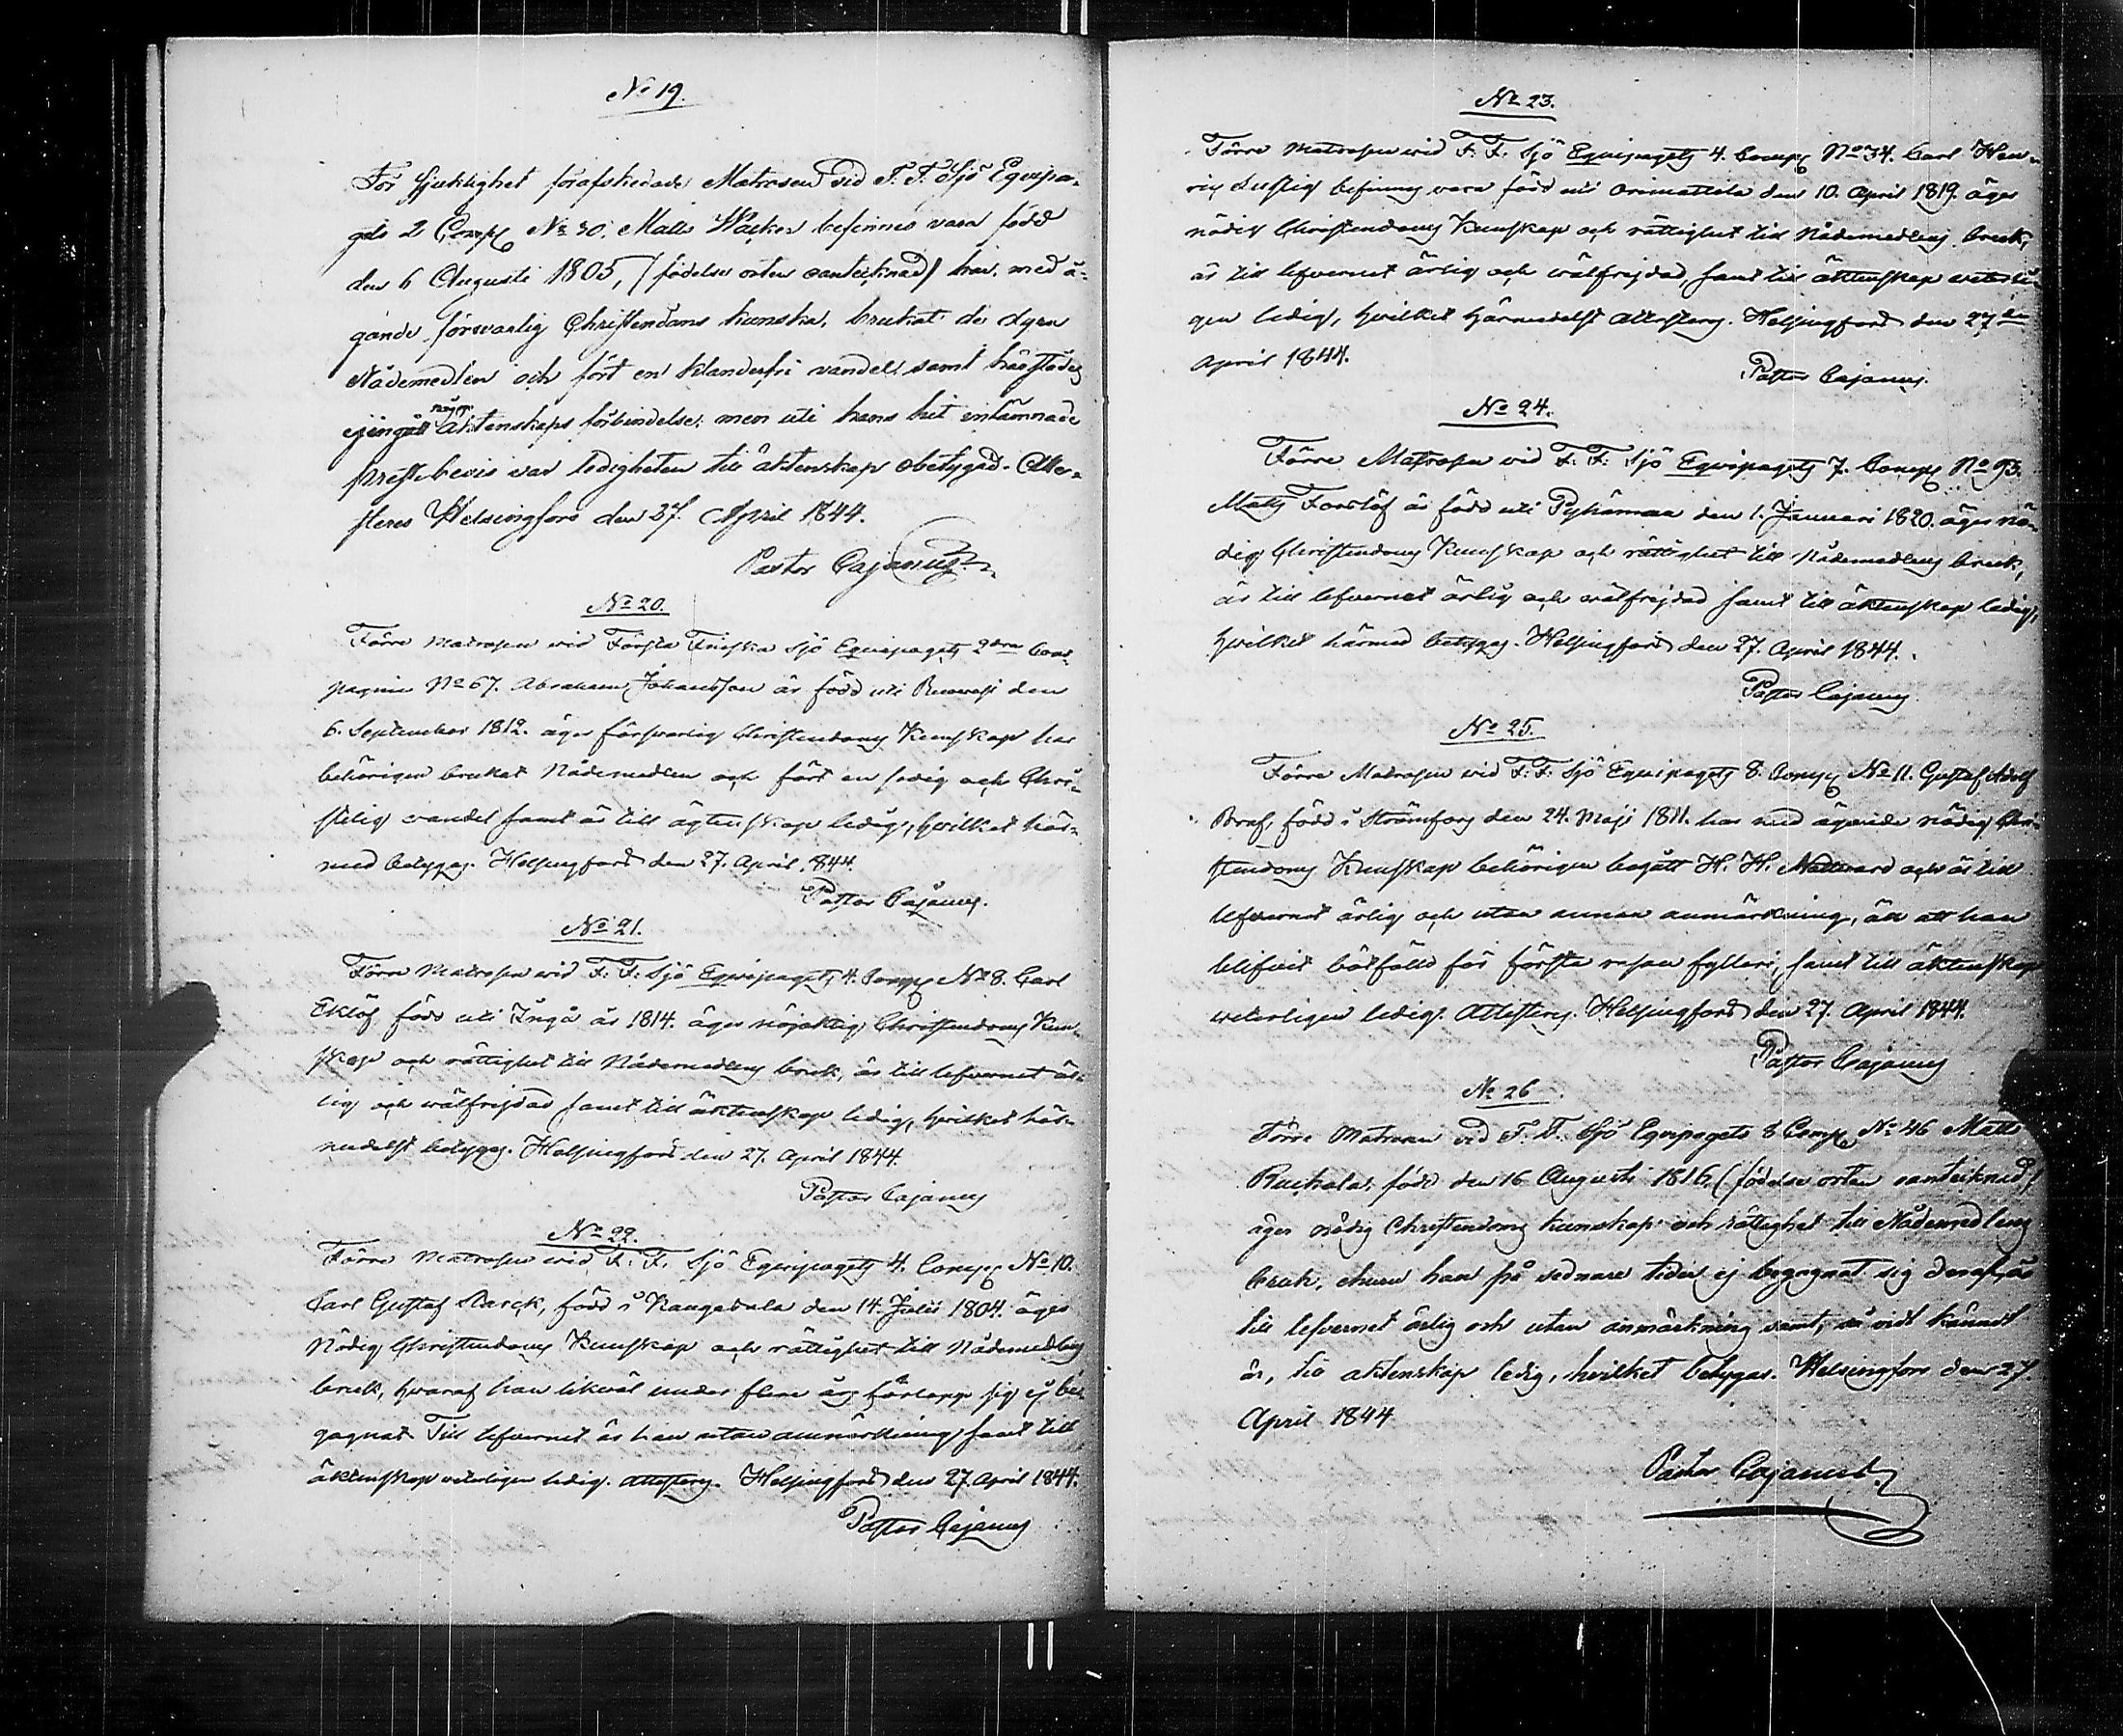 No 19.
För sjuklighet förafskedade Matrosen vid F. F. Sjö Equipa-
gets 2 Comp No 30. Matts Wacker befinnes vara född
den 6 Augusti 1805, (födelse orten oanteiknad) har, med ä-
gande försvarlig Christendoms kunska, brukat de dyra
Nådemedlen och fört en klanderfri vandel samt härstädes
ej ingått någon äktenskaps förbindelse; men uti hans hit inlämnade
prestbevis var ledigheten till äktenskap obetygad. Atte-
steres Helsingfors den 27. April 1844.
Pastor Cajanus
No 20.
Förre Matrosen wid Första Finska Sjö Equipagets 2dra Com-
pagnie No 67. Abraham Johansson är född uti Ruovesi den
6. September 1812. äger försvarlig Christendoms Kunskap har
behörigen brukat Nådemedlen och fört en sedig och Chri-
stelig vandel samt är till ägtenskap ledig, hvilket här-
med betygas. Helsingfors den 27. April 1844.
Pastor Cajanus.
No 21.
Förre Matrosen wid F: F: Sjö Equipagets 4. Comp No 8. Carl
Eklöf född uti Ingå år 1814. äger nöjaktig Christendoms Kun-
skap och rättighet till Nådemedlens bruk, är till lefvernet är-
lig och wälfrejdad samt till äktenskap ledig, hvilket här-
medelst betygas. Helsingfors den 27. April 1844.
Pastor Cajanus
No 22.
Förre Matrosen wid F: F. Sjö Equipagets 4. Comp No 10.
Carl Gustaf Starck, född i Kangasala den 14. Julii 1804. äger
Nödig Christendoms Kunskap och rättighet till Nådemedlens
bruk, hwaraf han likväl under flere års förlopp sig ej be-
gagnat. Till lefvernet är han utan anmärkning samt till
äktenskap veterligen ledig. Attesteras. Helsingfors den 27. April 1844.
Pastor Cajanus
No 23.
Förre Matrosen wid F: F: Sjö Equipagets 4. Comp No 34. Carl Hen-
ric Lustig befinnes vara född uti Orimattila den 10. April 1819. äger
nödig Christendoms Kunskap och rättighet till Nådemedlens bruk,
är till lefvernet ärlig och wälfrejdad, samt till äktenskap veterli-
gen ledig, hvilket härmedelst attesteras. Helsingfors den 27de
April 1844.
Pastor Cajanus.
No 24.
Förre Matrosen wid F: F: Sjö Equipagets 7. Comp No 93.
Matts Forslöf är född uti Pyhämaa den 1. Januari 1820. äger nö-
dig Christendoms Kunskap och rättighet till Nådemedlens bruk,
är till lefvernet ärlig och wälfrejdad samt till äktenskap ledig,
hvilket härmed betygas. Helsingfors den 27. April 1844.
Pastor Cajanus
No 25.
Förre Matrosen wid F: F: Sjö Equipagets 8. Comp No 11. Gustaf Adolf
Braf, född i Strömfors den 24. Maji 1811. har med ägande nödig Chri-
stendoms Kunskap behörigen begått H. H. Nattvard och är till
lefvernet ärlig och utan annan anmärkning, än att han
blifvit bötfälld för första resan fylleri, samt till äktenskap
veterligen ledig. Attesteras. Helsingfors den 27. April 1844.
Pastor Cajanus
No 26
Förre Matrosen vid F. F. Sjö Equipagets 8 Comp No 46 Matts
Ruckala, född den 16 Augusti 1816, (födelse orten oanteiknad)
äger nödig Christendoms kunskap och rättighet till Nådemedlens
bruk, ehuru han på sednare tider ej begagnat sig deraf, är
till lefvernet ärlig och utan anmärkning samt, så vidt kändt
är, till aktenskap ledig, hvilket betygas. Helsingfors den 27.
April 1844
Pastor Cajanus.